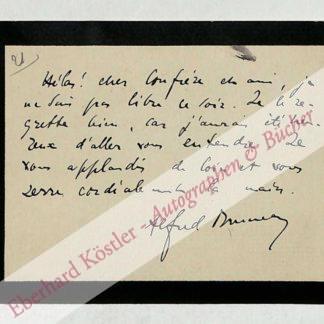 21
Hélas! cher Confrère et ami, je
ne suis pas libre ce soir. Je le re-
grette bien, car j'aurais été heu-
reux d'aller vous entendre. Je
vous applaudis de loin et vous
serre cordialement la main.
Alfred Bruneau
Eberhard Köstler - Autographen & Bücher